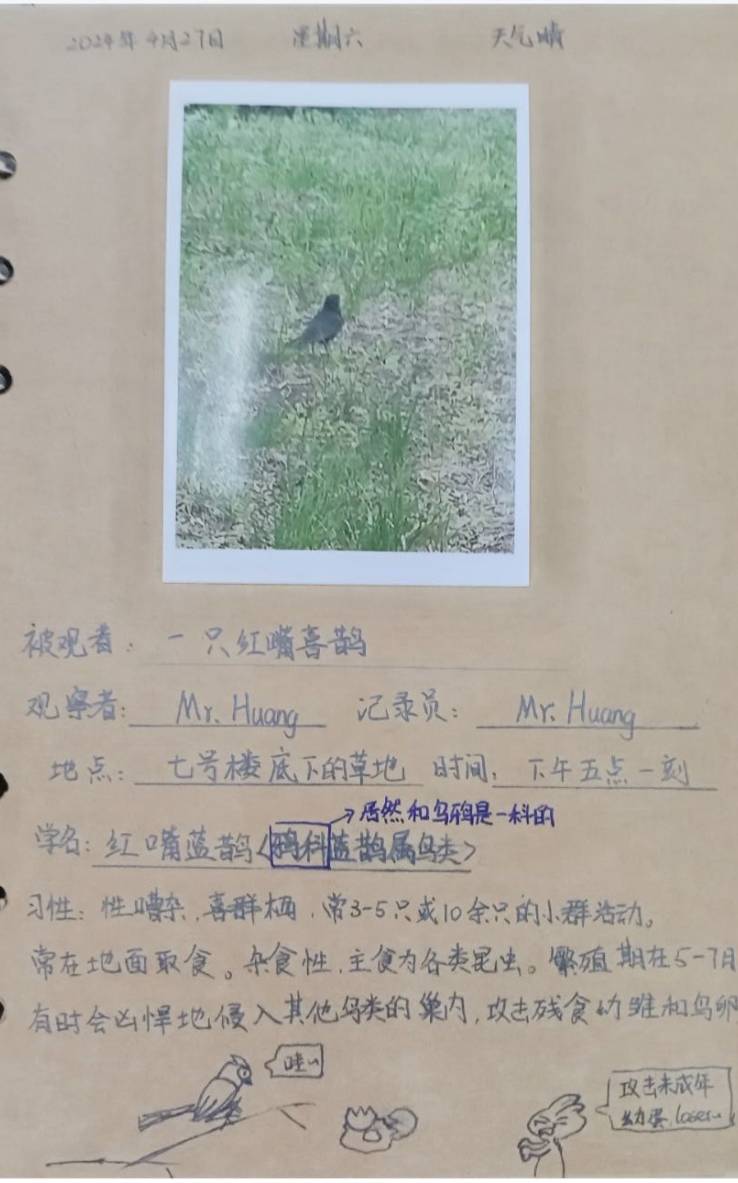 2024年4月27日 星期六 天气晴
被观者：一只红嘴喜鹊
观察者：Mr. Huang 记录员：Mr. Huang
地点：七号楼底下的草地 时间：下午五点一刻
→居然和乌鸦是一科的
学名：红嘴蓝鹊<鸦科蓝鹊属鸟类>
习性：性嘈杂，喜群栖，常3-5只或10余只的小群活动。
常在地面取食。杂食性，主食为各类昆虫。繁殖期在5-7月
有时会凶悍地侵入其他鸟类的巢内，攻击残食幼雏和鸟卵
哇~
攻击未成年
幼蛋，loser~